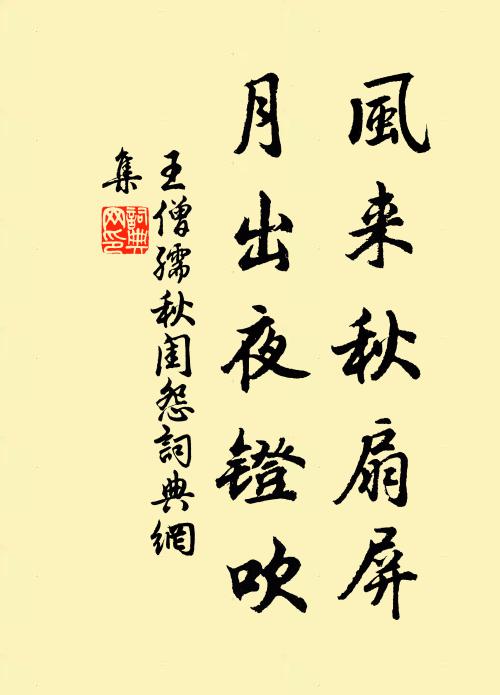 風来秋扇屏
月出夜鐙吹
王僧孺秋闺怨詞典網
集
詞典
网印